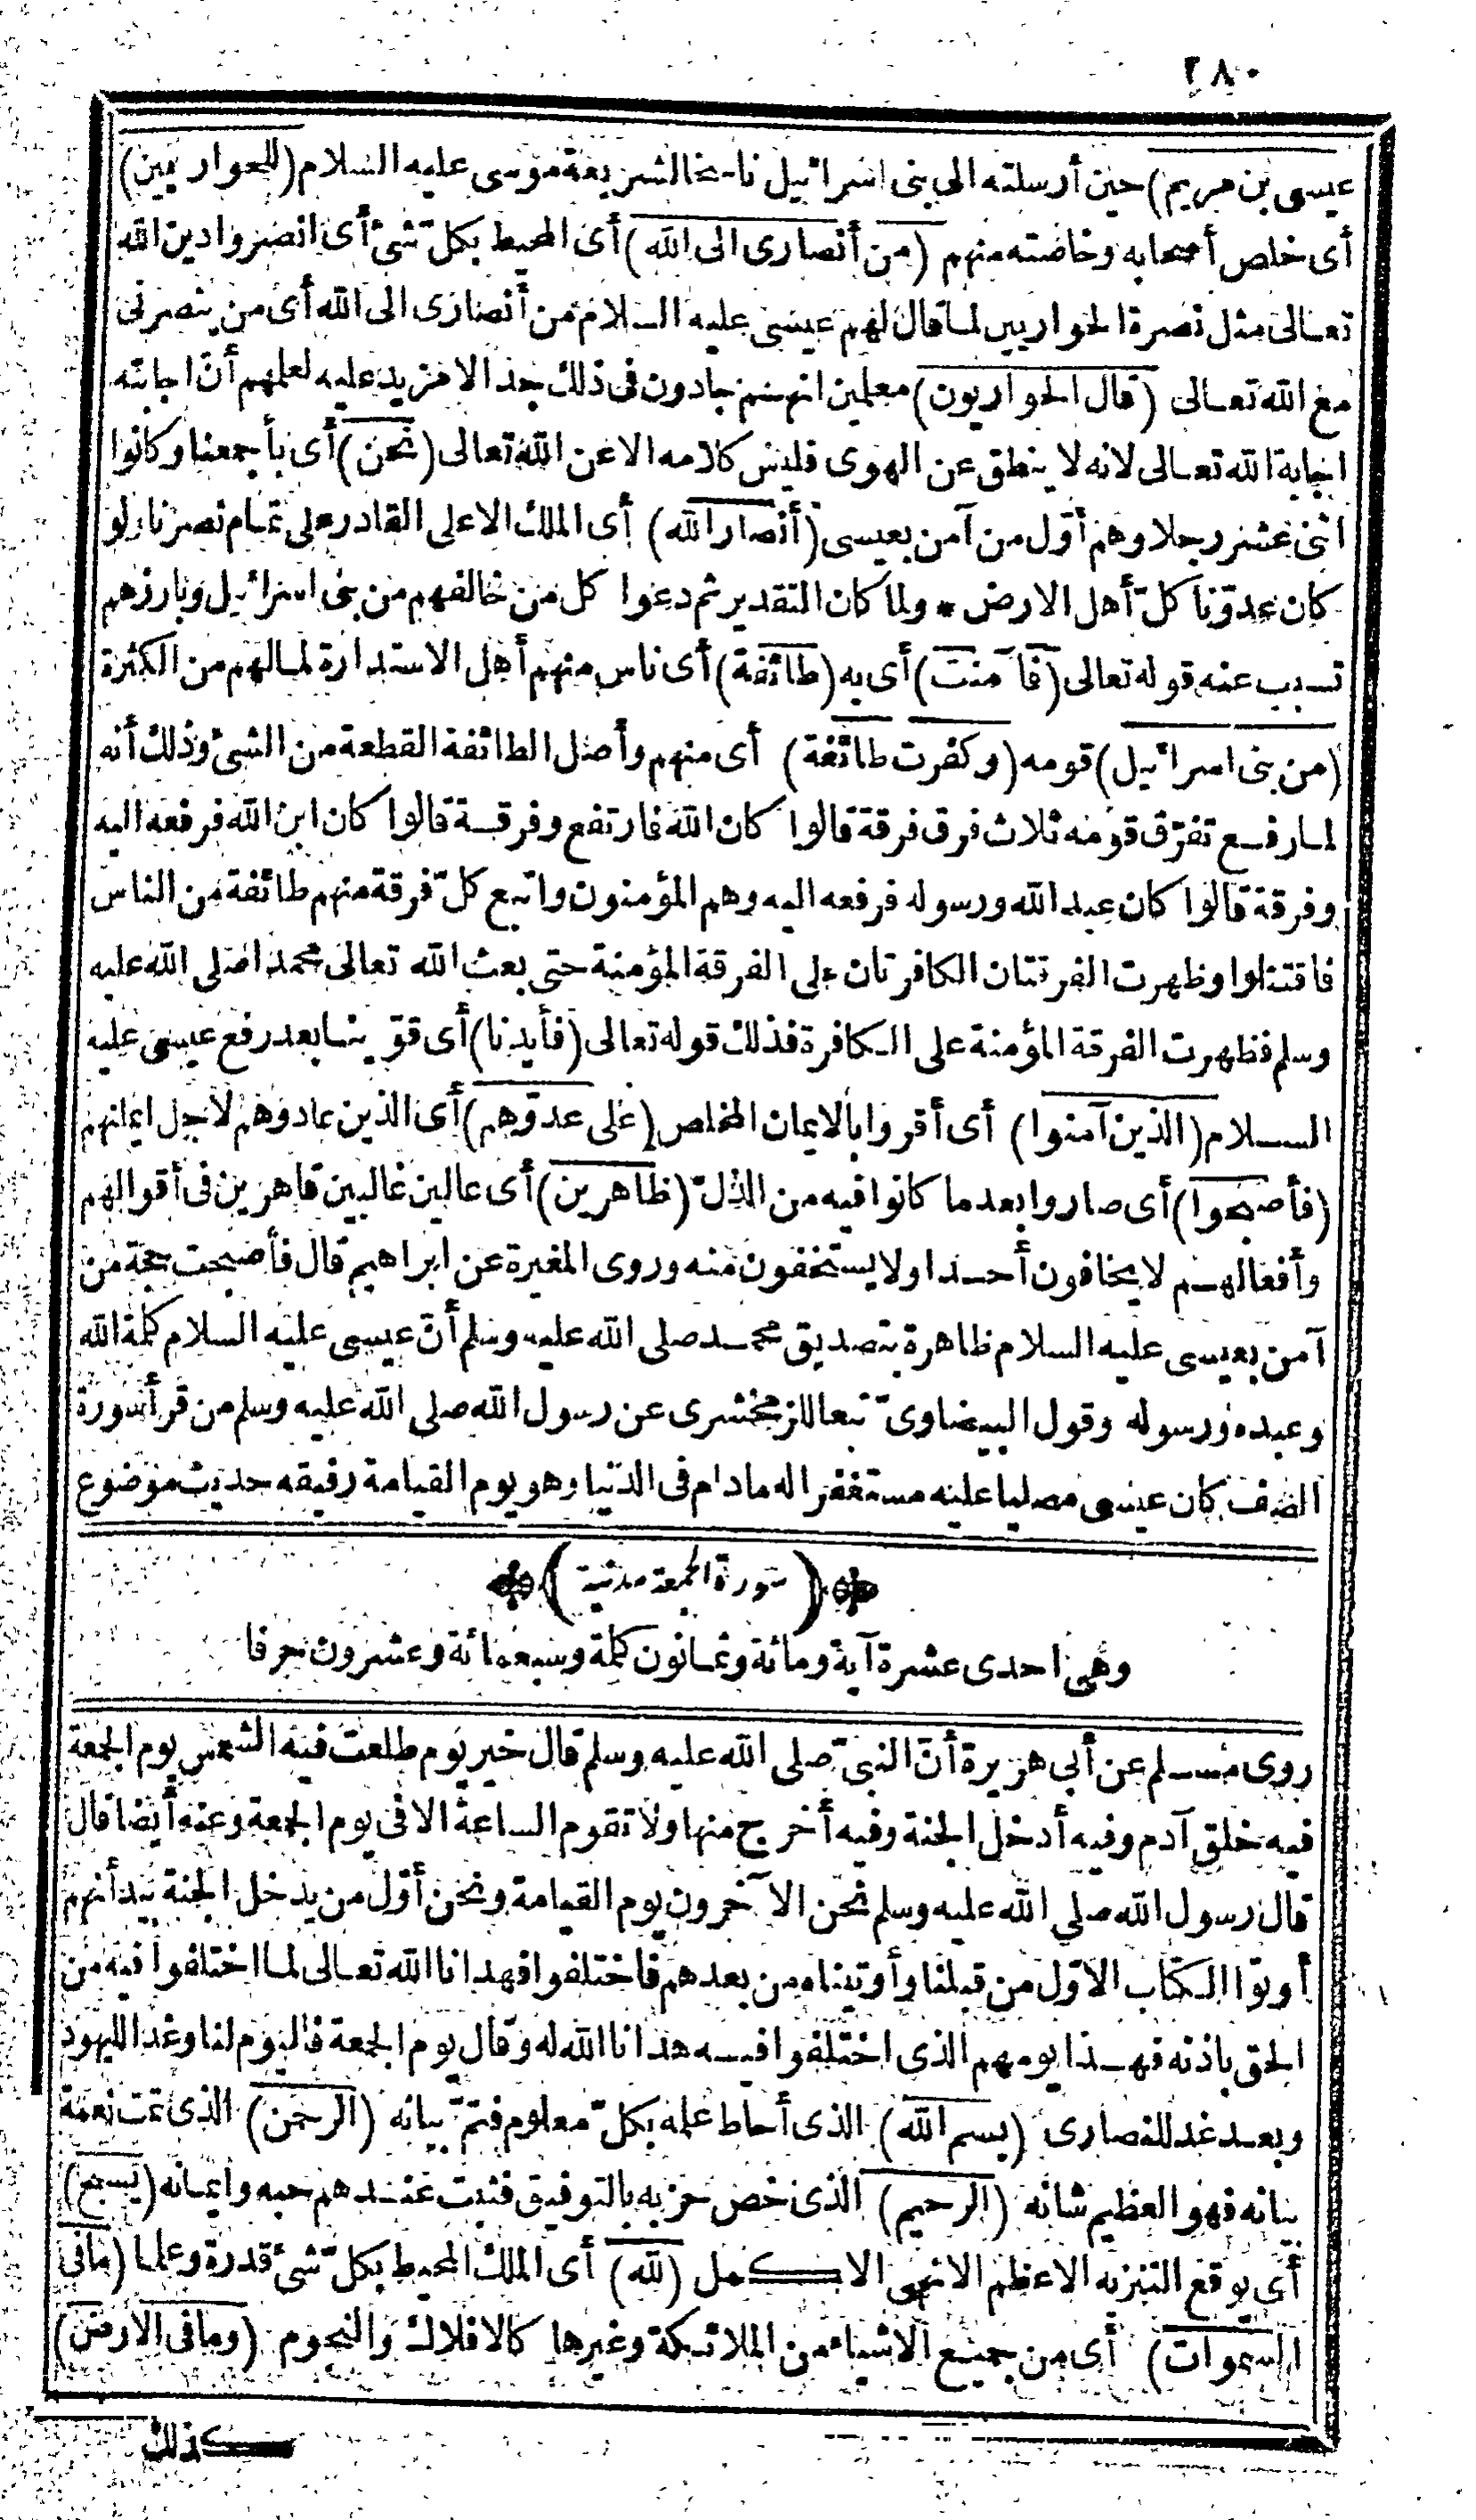 ٢٨٠
عيسى بن مريم) حين أرسلته الى بنى اسرائيل ناسخا لشريعة موسى عليه السلام (للحواريين)
أى خلص أصحابه وخاصته منهم (من أنصارى الى الله) أى المحيط بكلّ شئ أى انصروا دين الله
تعالى مثل نصرة الحواريين لما قال لهم عيسى عليه السلام من أنصارى الى الله أى من ينصرنى
مع الله تعالى (قال الحواريون) معلمين انهم جادون فى ذلك جدا لا مزيد عليه لعلمهم أنّ اجابته
اجابة الله تعالى لانه لا ينطق عن الهوى فليس كلامه الا عن الله تعالى (نحن) أى بأجمعنا وكانوا
اثنى عشر رجلا وهم أوّل من آمن بعيسى (أنصار الله) أى الملك الاعلى القادر على تمام نصرنا ولو
كان عدوّنا كلّ أهل الارض * ولما كان التقدير ثم دعوا كل من خالفهم من بنى اسرائيل وبارزهم
تسبب عنه قوله تعالى (فآمنت) أى به (طائفة) أى ناس منهم أهل الاستدارة لما لهم من الكثرة
(من بنى اسرائيل) قومه (وكفرت طائفة) أى منهم وأصل الطائفة القطعة من الشئ وذلك أنه
لما رفع تفرّق قومه ثلاث فرق فرقة قالوا كان الله فارتفع وفرقة قالوا كان ابن الله فرفعه اليه
وفرقة قالوا كان عبد الله ورسوله فرفعه اليه وهم المؤمنون واتبع كلّ فرقة منهم طائفة من الناس
فاقتتلوا وظهرت الفرقتان الكافرتان على الفرقة المؤمنة حتى بعث الله تعالى محمدا صلى الله عليه
وسلم فظهرت الفرقة المؤمنة على الكافرة فذلك قوله تعالى (فأيدنا) أى قوّينا بعد رفع عيسى عليه
السلام (الذين آمنوا) أى أقروا بالايمان المخلص (على عدوّهم) أى الذين عادوهم لاجل ايمانهم
(فأصبحوا) أى صاروا بعد ما كانوا فيه من الذلّ (ظاهرين) أى عالين غالبين قاهرين فى أقوالهم
وأفعالهم لا يخافون أحدا ولا يستخفون منه وروى المغيرة عن ابراهيم قال فأصبحت حجة من
آمن بعيسى عليه السلام ظاهرة بتصديق محمد صلى الله عليه وسلم أنّ عيسى عليه السلام كلمة الله
وعبده ورسوله وقول البيضاوىّ تبعا للزمخشرى عن رسول الله صلى الله عليه وسلم من قرأ سورة
الصف كان عيسى مصليا عليه مستغفرا له مادام فى الدنيا وهو يوم القيامة رفيقه حديث موضوع
(سورة الجمعة مدنية)
وهى احدى عشرة آية ومائة وثمانون كلمة وسبعمائة وعشرون حرفا
روى مسلم عن أبى هريرة أنّ النبىّ صلى الله عليه وسلم قال خير يوم طلعت فيه الشمس يوم الجمعة
فيه خلق آدم وفيه أدخل الجنة وفيه أخرج منها ولا تقوم الساعة الا فى يوم الجمعة وعنه أيضا قال
قال رسول الله صلى الله عليه وسلم نحن الآخرون يوم القيامة ونحن أوّل من يدخل الجنة بيد أنهم
أوتوا الكتاب الاوّل من قبلنا وأوتيناه من بعدهم فاختلفوا فهدانا الله تعالى لما اختلفوا فيه من
الحق باذنه فهذا يومهم الذى اختلفوا فيه هدانا الله له وقال يوم الجمعة فاليوم لنا وغدا لليهود
وبعد غد للنصارى (بسم الله) الذى أحاط علمه بكلّ معلوم فتمّ بيانه (الرحمن) الذى تمت نعمة
بيانه فهو العظيم شانه (الرحيم) الذى خص حزبه بالتوفيق فثبت عندهم حبه وايمانه (يسبح)
أى يوقع التنزيه الاعظم الانهى الاكمل (لله) أى الملك المحيط بكلّ شئ قدرة وعلما (ما فى
السموات) أى من جميع الاشياء من الملائكة وغيرها كالافلاك والنجوم (وما فى الارض)
كذلك